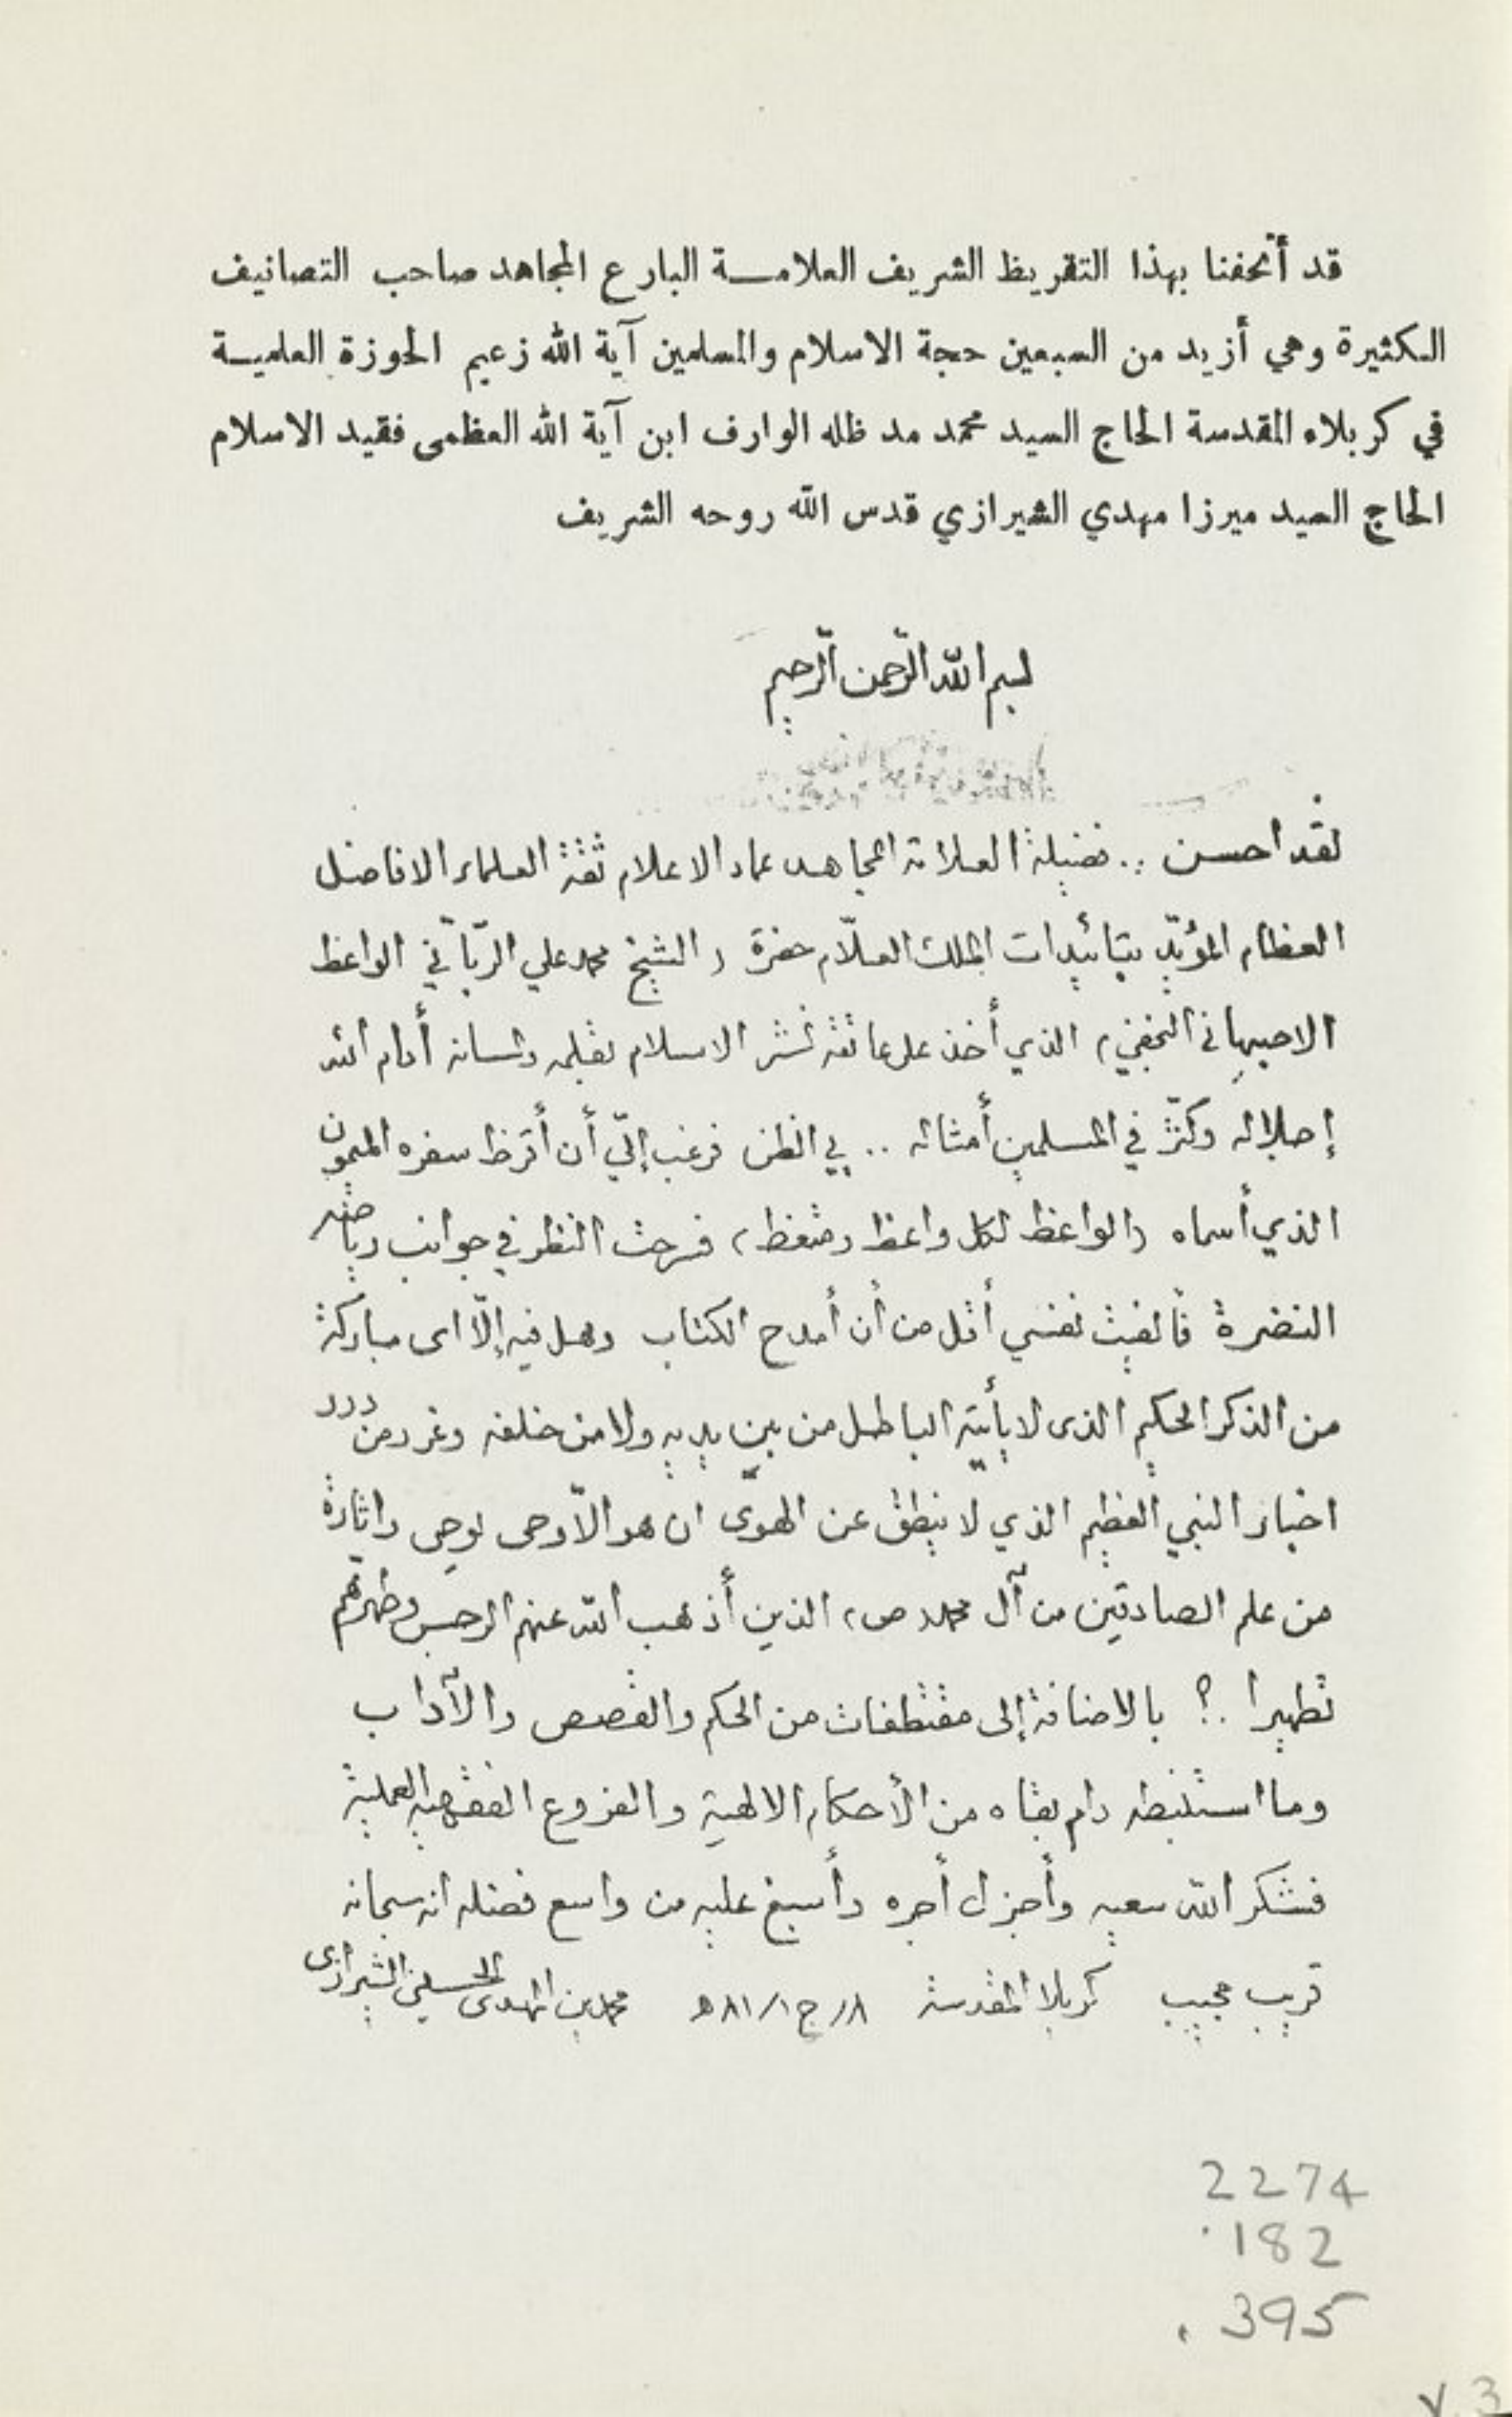 قد أتحفنا بهذا التقريظ الشريف العلامة البارع المجاهد صاحب التصانيف
الكثيرة وهي أزيد من السبعين حجة الاسلام والمسلمين آية الله زعيم الحوزة العلمية
في كربلاء المقدسة الحاج السيد محمد مد ظله الوارف ابن آية الله العظمى فقيد الاسلام
الحاج السيد ميرزا مهدي الشيرازي قدس الله روحه الشريف
بسم الله الرّحمن الرّحيم
لقد احسن .. فضيلة العلامة المجاهد عماد الاعلام ثقة العلماء الافاضل
العظام المؤيّد بتائيدات الملك العلّام حضرة (الشيخ محمد علي الرّبّاني الواعظ
الاصبهاني النجفي) الذي أخذ على عاتقه نشر الاسلام بقلمه ولسانه أدام الله
إجلاله وكثّر في المسلمين أمثاله .. بي الظن فرغب إليّ أن أقرظ سفره الميمون
الذي أسماه (الواعظ لكل واعظ ومتعظ) فسرحت النظر في جوانب رياضه
النضرة فألفيت نفسي أقل من أن أمدح الكتاب وهل فيه إلّا اى مباركة
من الذكر الحكيم الذى لا يأتيه الباطل من بين يديه ولا من خلفه وغرر من درر
اخبار النبي العظيم الذي لا ينطق عن الهوى ان هو الّا وحى يوحى واثارة
من علم الصادقين من آل محمد (ص) الذين أذهب الله عنهم الرجس وطهرهم
تطهيرا .؟ بالاضافة إلى مقتطفات من الحكم والقصص والآداب
وما استنبطه دام بقاه من الأحكام الالهية والفروع الفقهية العملية
فشكر الله سعيه وأجزل أجره وأسبغ عليه من واسع فضله انه سبحانه
قريب مجيب كربلا المقدسة ٨/ ج ١/ ٨١ ه محمد بن المهدى الحسيني الشيرازى
2274
.182
.395
v.3